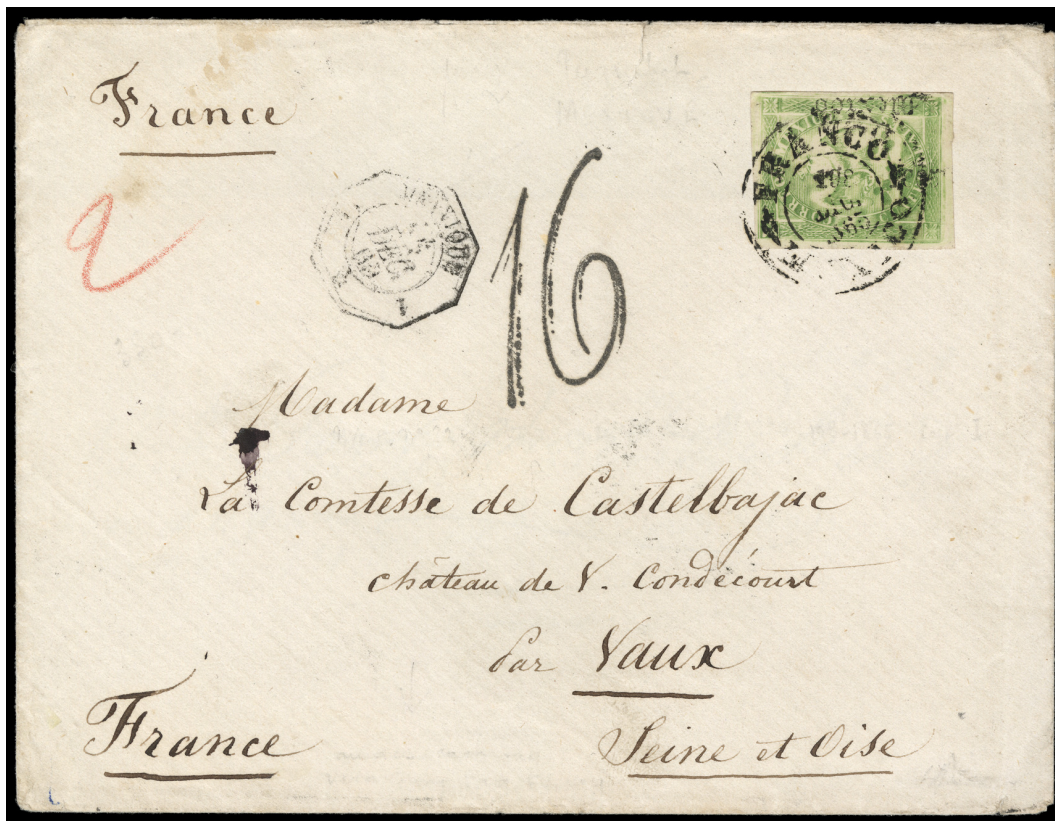 France
2
MEXIQUE
DEC
65
1
16
FRANCO
MEXICO
1865
Madame
La Comtesse de Castelbajac
château de V. Condécourt
par Vaux
France
Seine et Oise